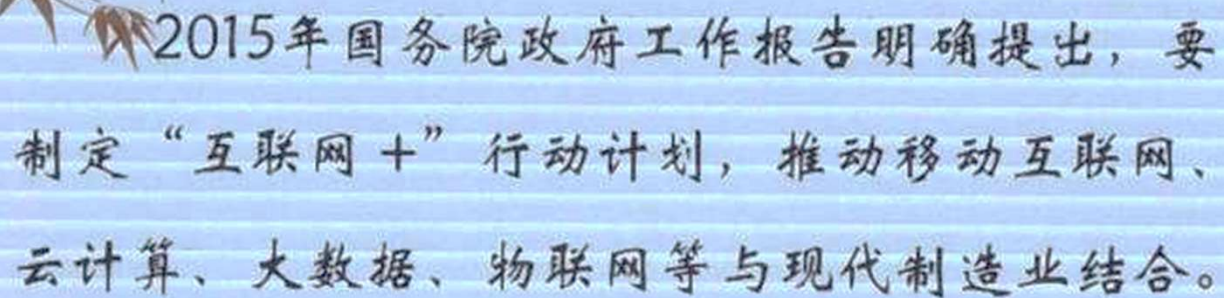 2015年国务院政府工作报告明确提出，要
制定“互联网+”行动计划，推动移动互联网、
云计算、大数据、物联网等与现代制造业结合。